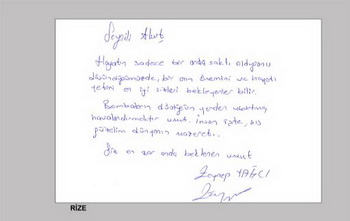 Sevgili Umut,
Hayatın sadece bir anda saklı olduğunu
düşündüğümüzde, bir anın önemini ve hayati
yetini en iyi bekleyenler bilir.
Bombaların düştüğü yerden uçurtma
havalandırmaktır umut. İnsan işte, biz
güzelim dünyanın
Bir en zor anda beklenen umut
Zeynep YAĞCI
RİZE